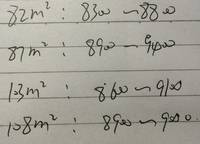 82m² : 8300 ~ 8800
87m² : 8900 ~ 9400
103m² : 8600 ~ 9100
108m² : 8900 ~ 9000